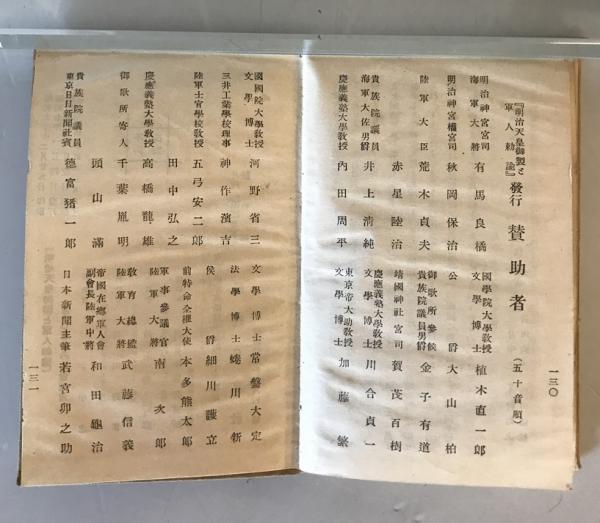 『明治天皇御製と
軍人勅諭』發行 賛助者 (五十音順)
明治神宮宮司
海軍大將 有馬良橘
明治神宮權宮司 秋岡保治
陸軍大臣 荒木貞夫
赤星陸治
貴族院議員
海軍大佐男爵 井上清純
慶應義塾大學教授 內田周平
一三〇
國學院大學教授
文學博士 植木直一郎
公爵 大山柏
御歌所參候
貴族院議員 金子有道
靖國神社宮司 賀茂百樹
慶應義塾大學教授
文學博士 川合貞一
東京帝大助教授
文學博士 加藤繁
國學院大學教授
文學博士 河野省三
三井工業學校理事 神作濱吉
陸軍士官學校教授 五弓安二郎
田中弘之
慶應義塾大學教授 高橋龍雄
御歌所寄人 千葉胤明
頭山滿
貴族院議員
東京日日新聞社賓 德富猪一郎
文學博士 常盤大定
法學博士 蜷川新
侯爵 細川護立
前特命全權大使 本多熊太郎
軍事參議官
陸軍大將 南次郎
教育總監
陸軍大將 武藤信義
帝國在鄕軍人會
副會長陸軍中將 和田龜治
日本新聞主筆 若宮卯之助
一三一